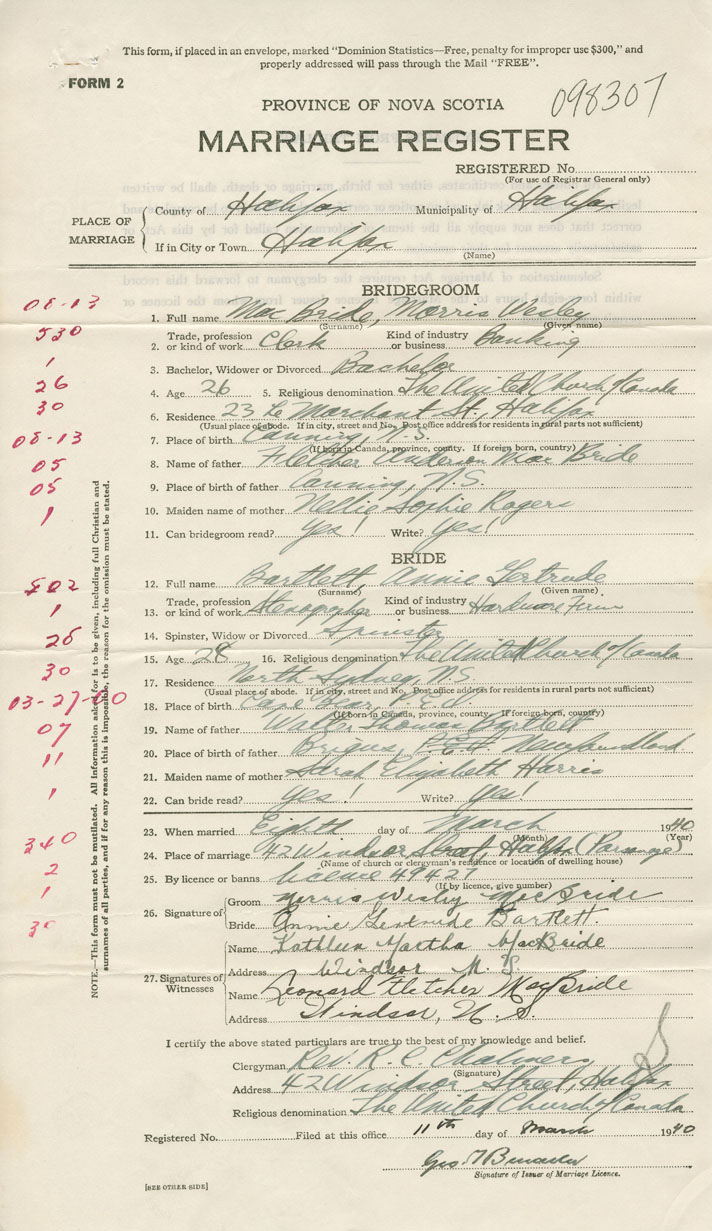 This form, if placed in an envelope, marked "Dominion Statistics—Free, penalty for improper use $300," and
properly addressed will pass through the Mail "FREE".
FORM 2
098307
PROVINCE OF NOVA SCOTIA
MARRIAGE REGISTER
REGISTERED No.
(For use of Registrar General only)
PLACE OF MARRIAGE
County of Halifax Municipality of Halifax
If in City or Town Halifax
(Name)
BRIDEGROOM
08-13
1. Full name Mac Bride, Morris Wesley
(Surname) (Given name)
530
2. Trade, profession or kind of work Clerk Kind of industry or business Banking
1
3. Bachelor, Widower or Divorced Bachelor
26
4. Age 26 5. Religious denomination The United Church of Canada
30
6. Residence 23 Le Marchant St., Halifax
(Usual place of abode. If in city, street and No. Post office address for residents in rural parts not sufficient)
08-13
7. Place of birth Canning, N.S.
(If born in Canada, province, county. If foreign born, country)
05
8. Name of father Fletcher Anderson Mac Bride
05
9. Place of birth of father Canning, N.S.
1
10. Maiden name of mother Nellie Sophie Rogers
11. Can bridegroom read? Yes! Write? Yes!
BRIDE
12. Full name Bartlett, Annie Gertrude
(Surname) (Given name)
1
13. Trade, profession or kind of work Stenographer Kind of industry or business Hardware Firm
14. Spinster, Widow or Divorced Spinster
28
15. Age 28 16. Religious denomination The United Church of Canada
30
17. Residence North Sydney, N.S.
(Usual place of abode. If in city, street and No. Post office address for residents in rural parts not sufficient)
18. Place of birth P.E.I.
(If born in Canada, province, county. If foreign born, country)
07
19. Name of father Thomas Bartlett
11
20. Place of birth of father Brigus, P.E.I. Newfoundland
21. Maiden name of mother Sarah Elizabeth Harris
1
22. Can bride read? Yes! Write? Yes!
23. When married Eighth day of March 1940
(Month) (Year)
340
24. Place of marriage 42 Windsor Street, Halifax (Parsonage)
(Name of church or clergyman's residence or location of dwelling house)
2
25. By licence or banns licence 49427
(If by licence, give number)
1
26. Signature of Groom Morris Wesley MacBride
Bride Annie Gertrude Bartlett.
27. Signatures of Witnesses
Name Kathleen Martha MacBride
Address Windsor N.S.
Name Leonard Fletcher MacBride
Address Windsor, N.S.
I certify the above stated particulars are true to the best of my knowledge and belief.
Clergyman Rev. R. C. Chalmers
(Signature)
Address 42 Windsor Street, Halifax
Religious denomination The United Church of Canada
Registered No. Filed at this office 11th day of March 1940
Geo
Signature of Issuer of Marriage Licence.
[SEE OTHER SIDE]
NOTE.—This form must not be mutilated. All information asked for is to be given, including full Christian and
surnames of all parties, and if for any reason this is impossible, the reason for the omission must be stated.